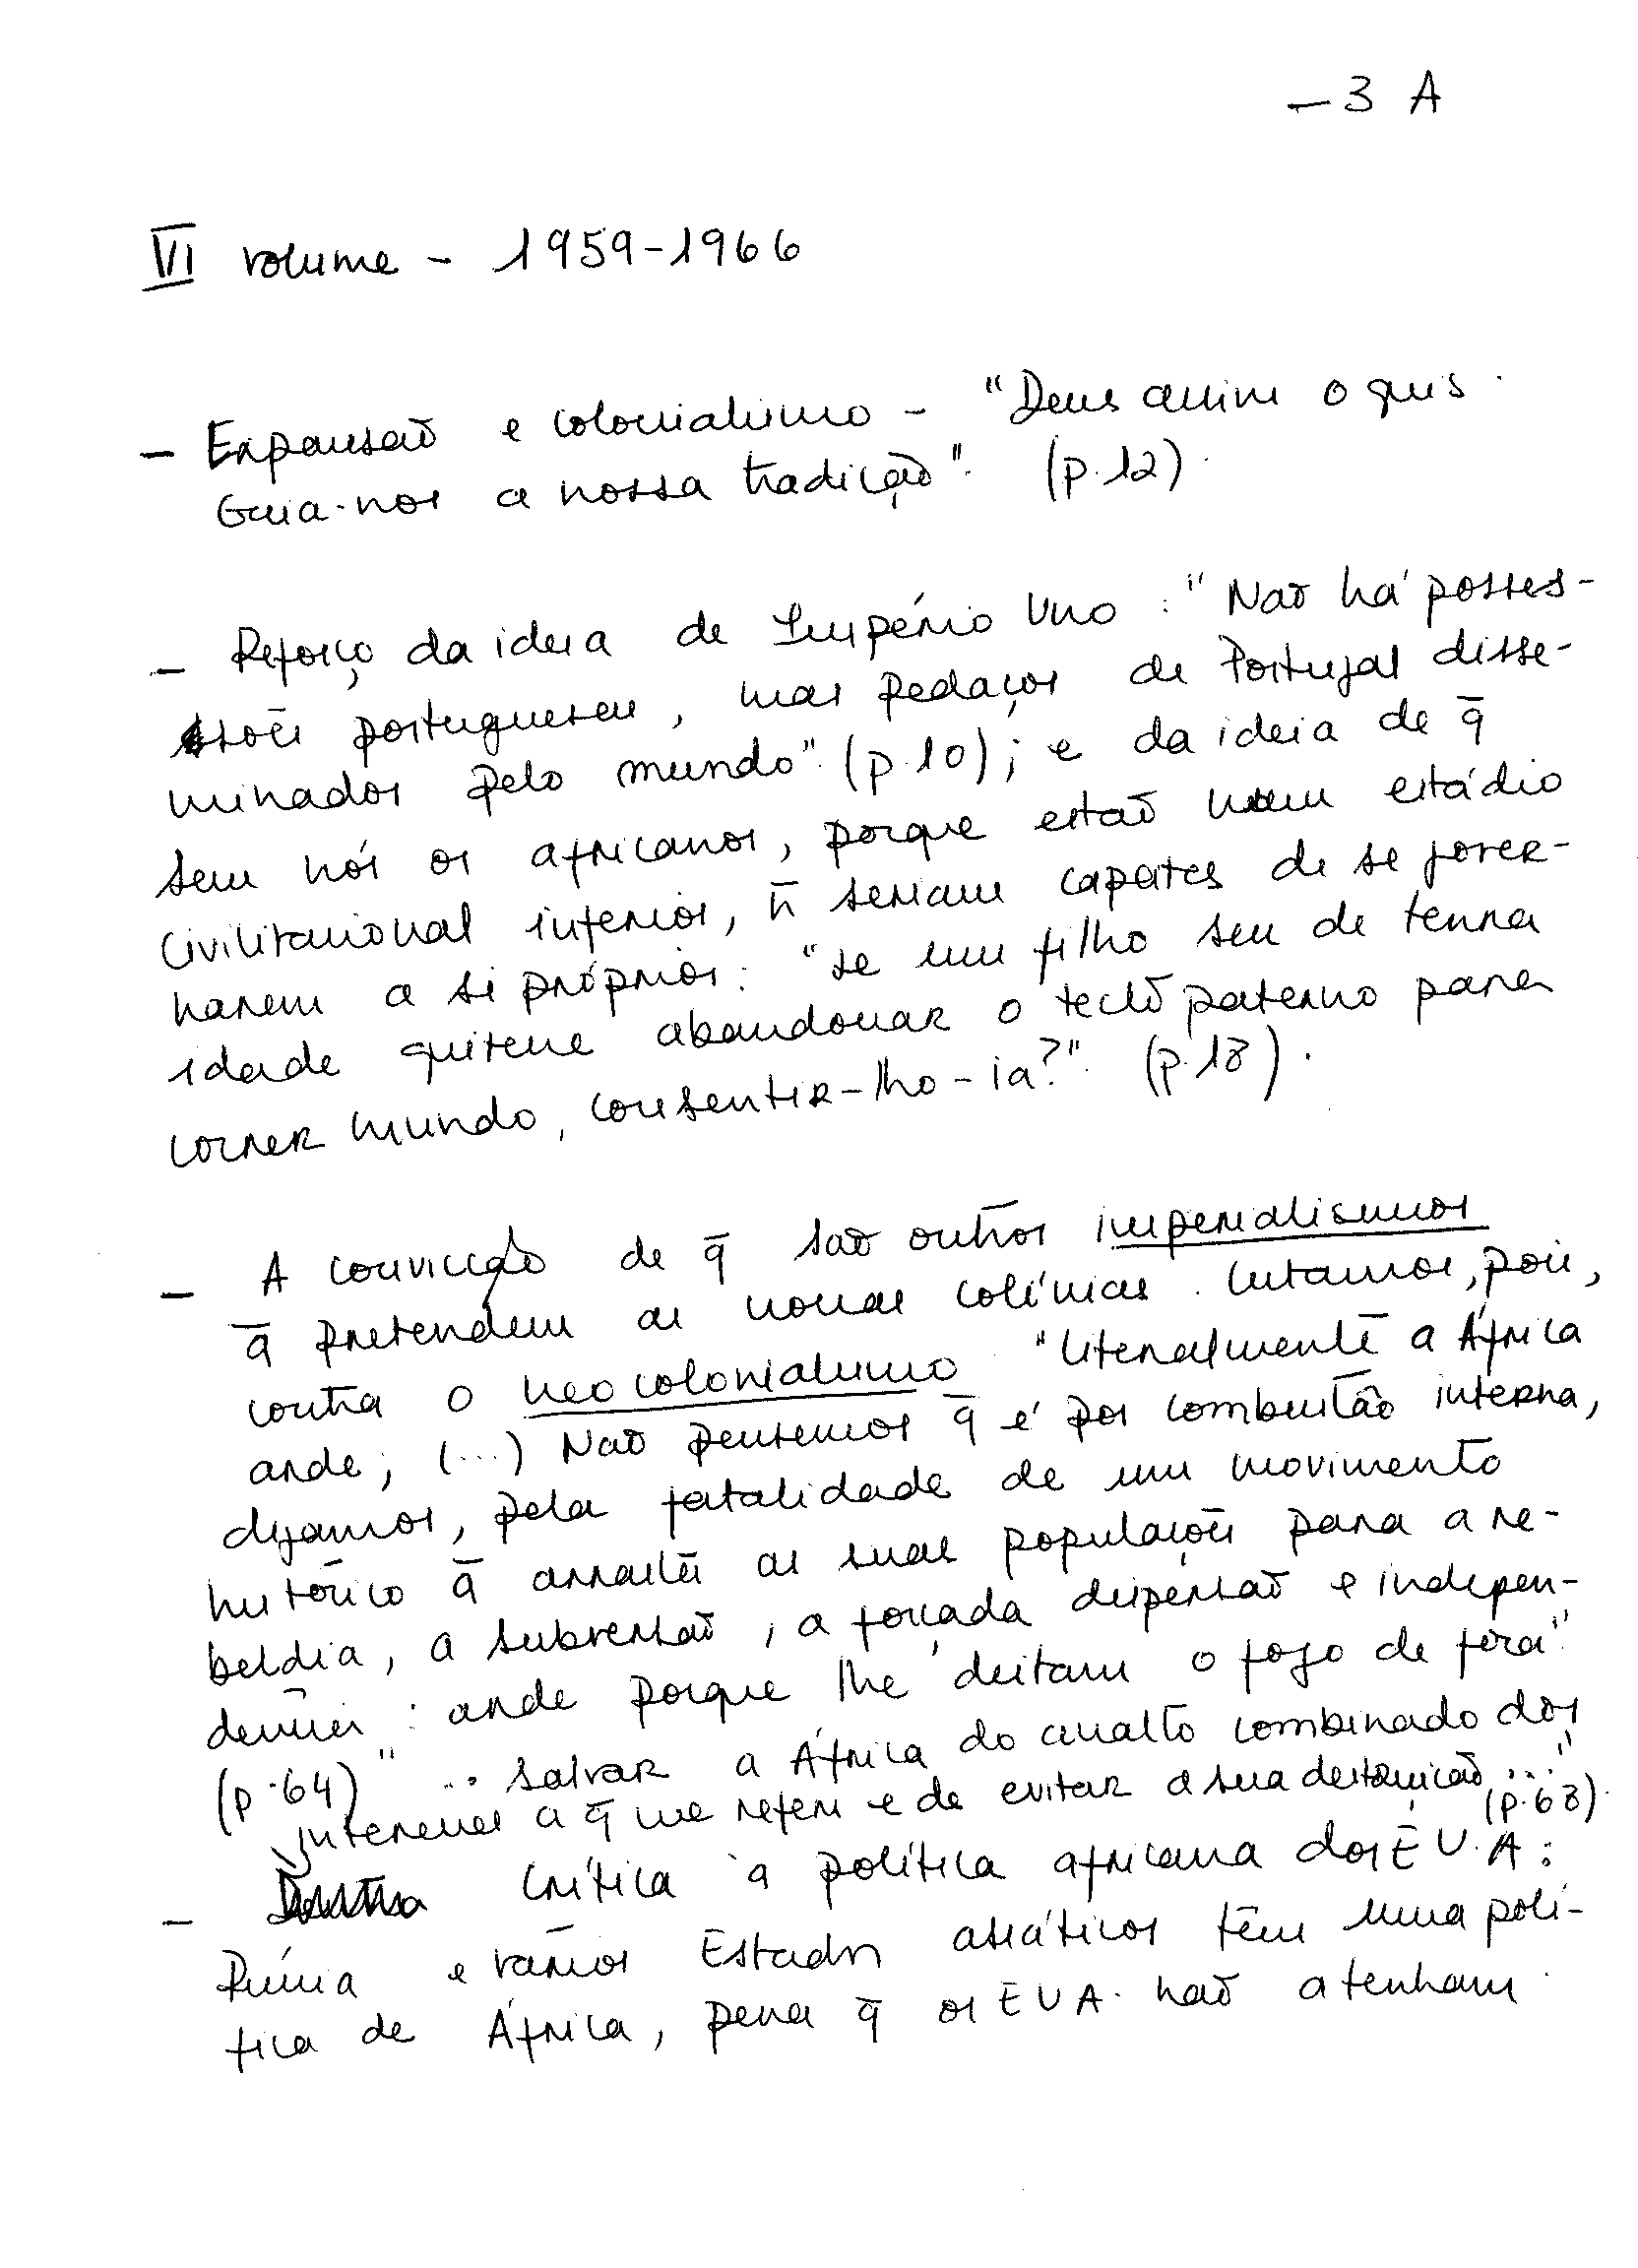 — 3 A
VI volume - 1959-1966
- Expansão e colonialismo - "Deus assim o quis.
Guia-nos a nossa tradição". (p.12).
- Reforço da ideia de Império Uno: "Não há posses-
sões portuguesas, mas pedaços de Portugal disse-
minados pelo mundo". (p.10); e da ideia de q̄
sem nós os africanos, porque estão num estádio
civilizacional inferior, n̄ seriam capazes de se gover-
narem a si próprios: "se um filho seu de tenra
idade quisesse abandonar o tecto paterno para
correr mundo, consentir-lho-ia?". (p.18).
- A convicção de q̄ são outros imperialismos
q̄ pretendem as nossas colónias. Lutamos, pois,
contra o neocolonialismo. "Literalmente a África
arde; (...) Não pensemos q̄ é por combustão interna,
digamos, pela fatalidade de um movimento
histórico q̄ arraste as suas populações para a re-
beldia, a subversão, a forçada dispersão e indepen-
dência: arde porque lhe deitam o fogo de fora".
(p.64) "... salvar a África do assalto combinado dos
interesses a q̄ me referi e de evitar a sua destruição..."
(p.68).
- Crítica à política africana dos E.U.A:
Rússia e vários Estados asiáticos têm uma polí-
tica de África, pena q̄ os EUA. não a tenham.